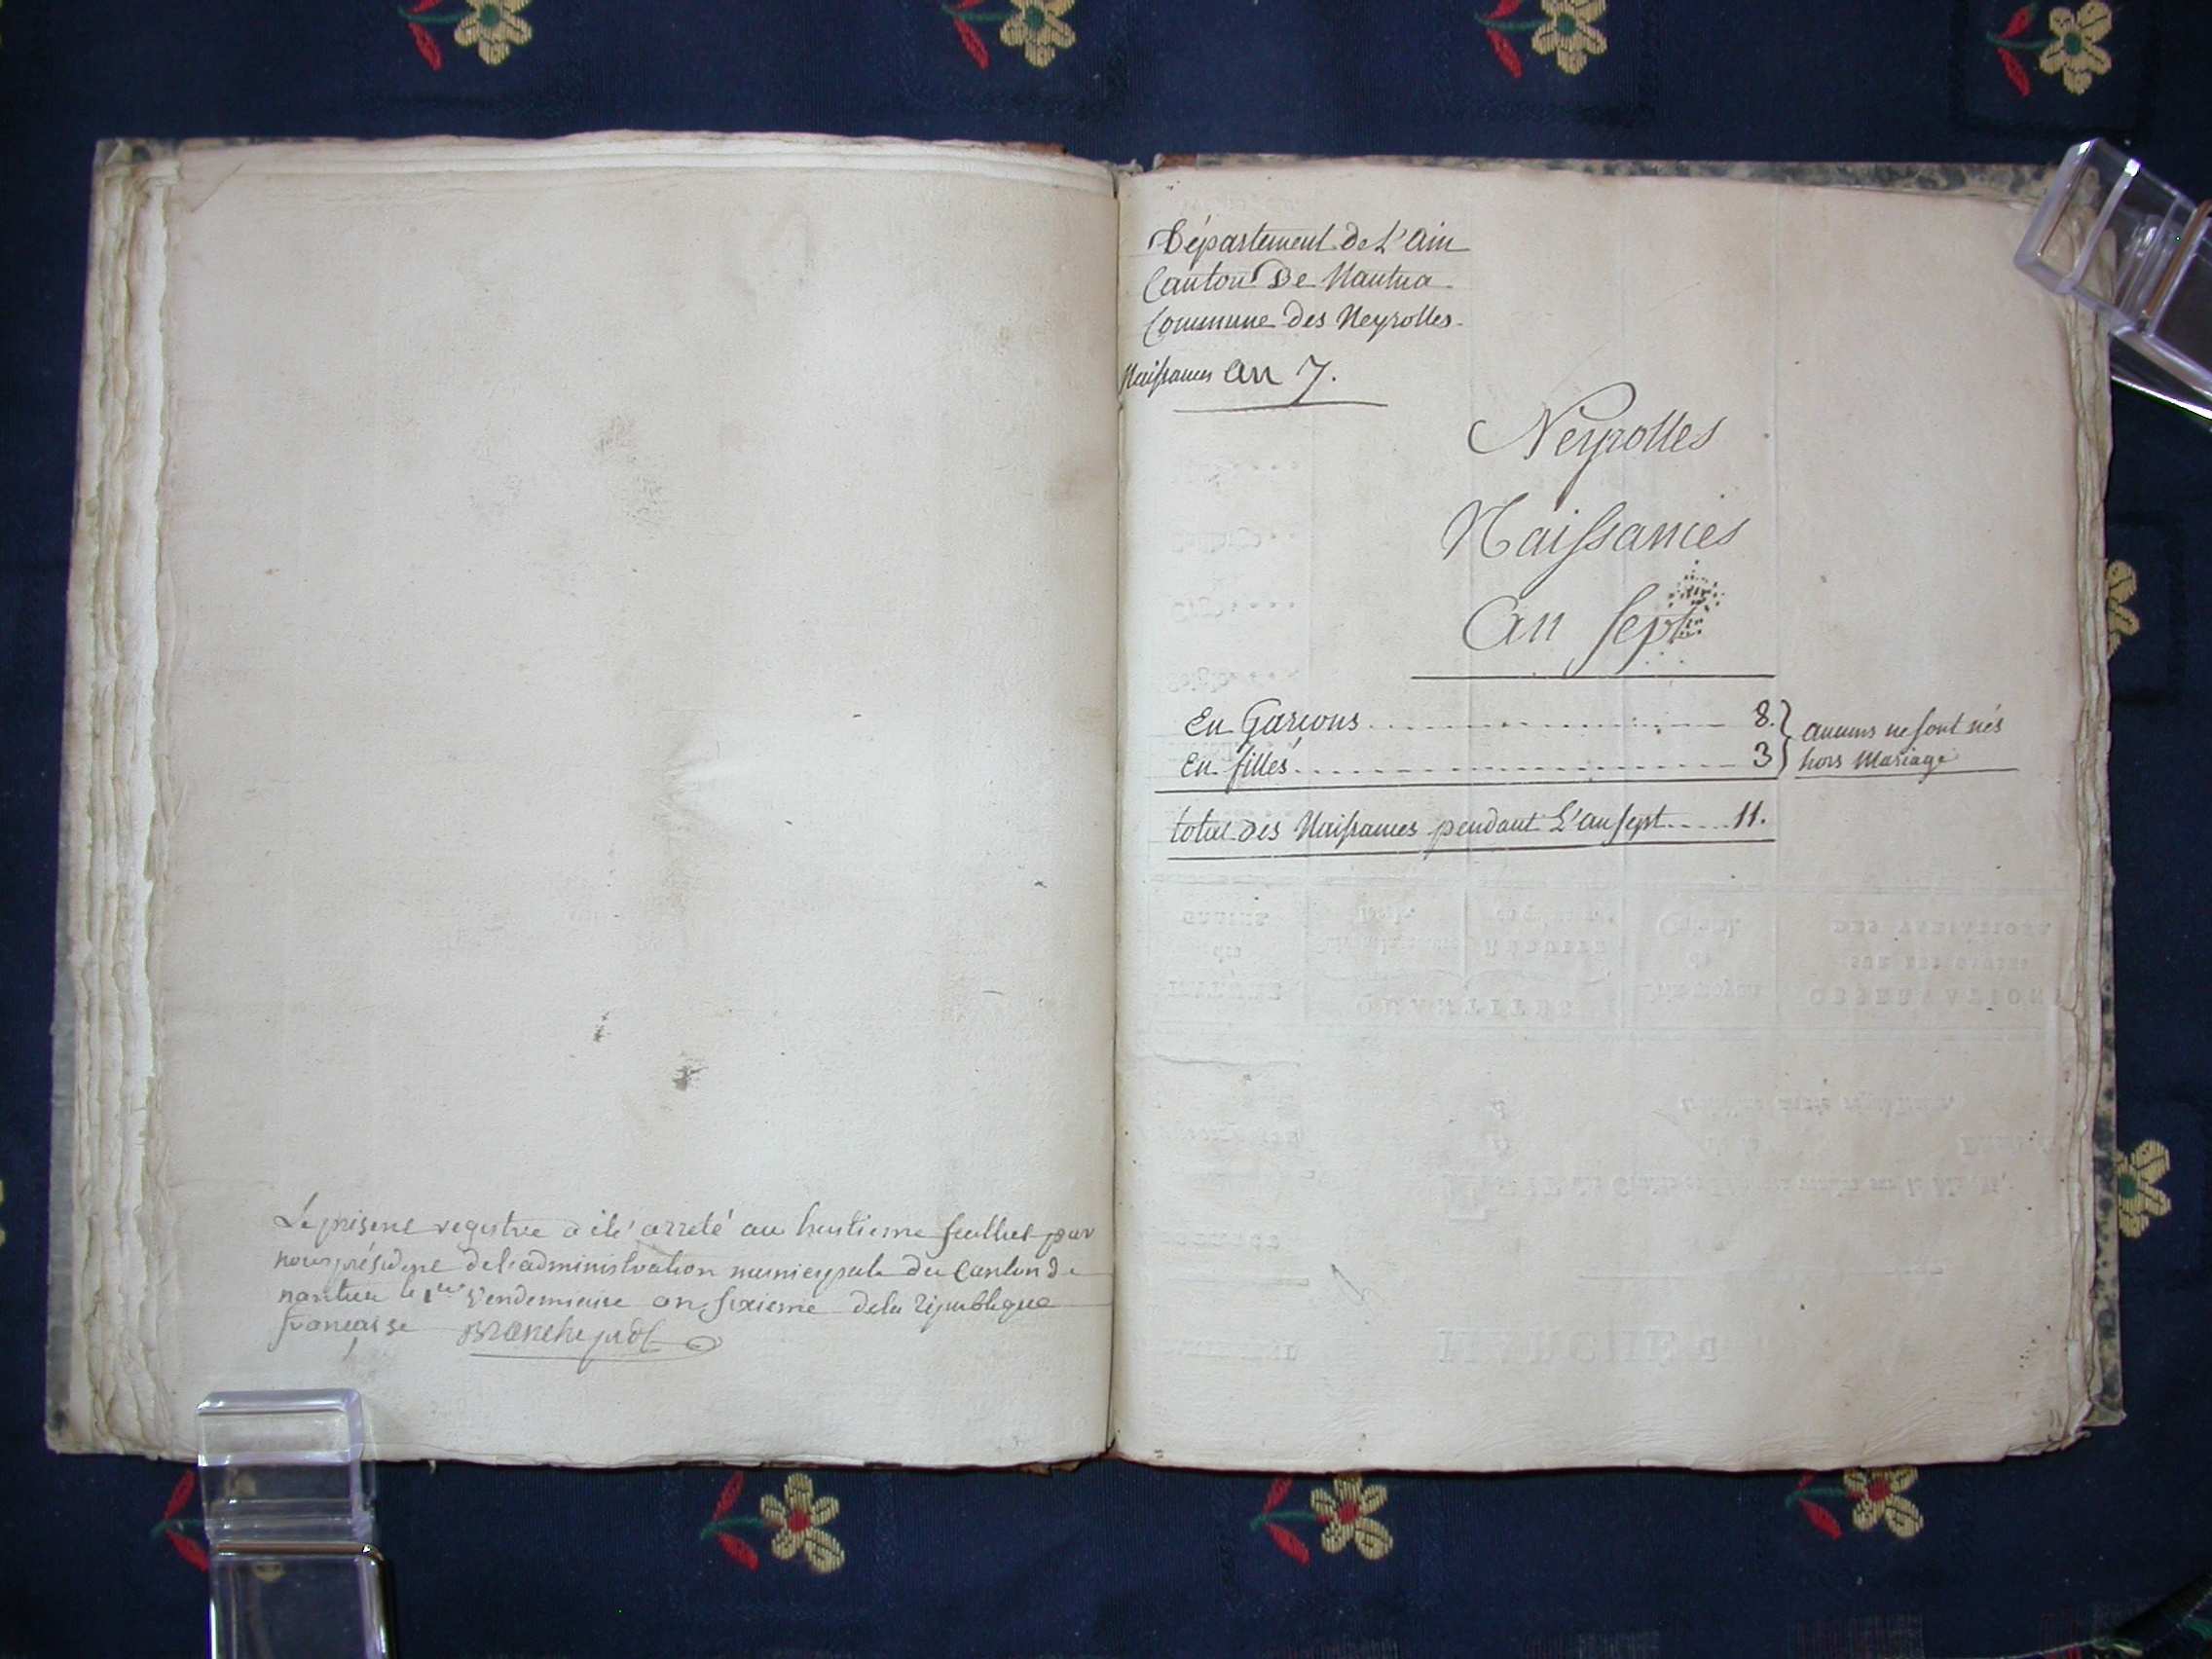 Le présent registre a été arreté au huitieme feuillet par
nous présidene de l'administration municipale du Canton de
nantua le 1er Vendemiaire an sixieme de la république
francaise Branche
Département de L'Ain
Canton De Nantua
Commune des Neyrolles
Naissances an 7.
Neyrolles
Naissances
An Sept
En Garçons 8.
En filles 3
aucuns ne sont nés
hors Mariage
total des Naissances pendant L'an sept 11.